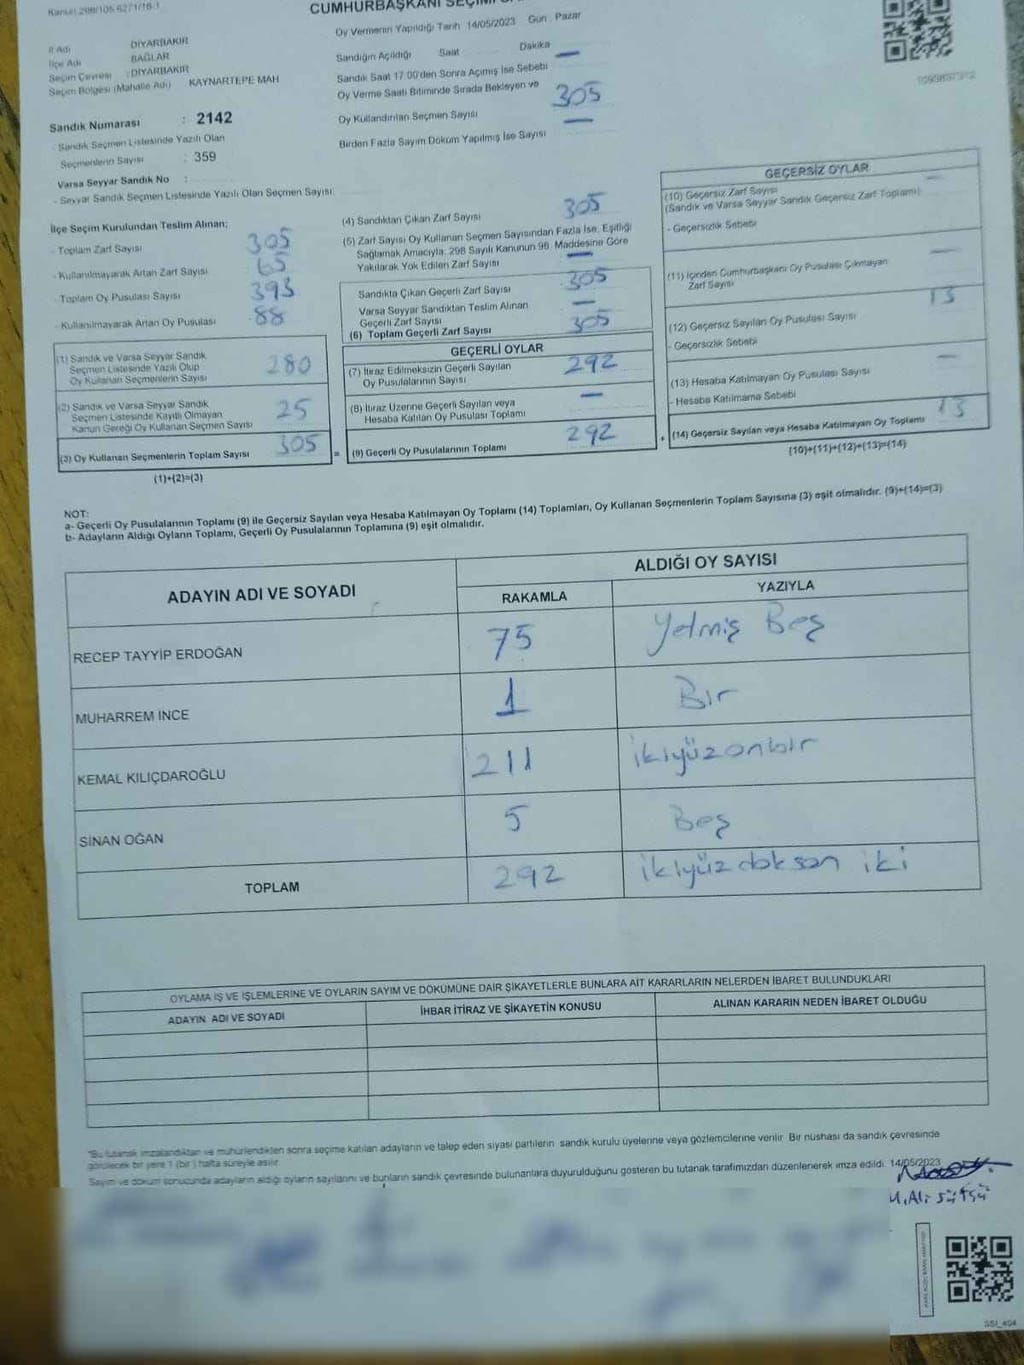 Kanun 298/105 6271/16-1
CUMHURBAŞKANI SEÇİMİ
Oy Vermenin Yapıldığı Tarih 14/05/2023 Gün . Pazar
İl Adı DİYARBAKIR
İlçe Adı BAĞLAR
Seçim Çevresi : DİYARBAKIR
Seçim Bölgesi (Mahalle Adı) KAYNARTEPE MAH
Sandık Numarası : 2142
- Sandık Seçmen Listesinde Yazılı Olan
Seçmenlerin Sayısı : 359
Varsa Seyyar Sandık No :
- Seyyar Sandık Seçmen Listesinde Yazılı Olan Seçmen Sayısı:
Sandığın Açıldığı Saat Dakika
Sandık Saat 17.00'den Sonra Açımış İse Sebebi —
Oy Verme Saati Bitiminde Sırada Bekleyen ve
Oy Kullandırılan Seçmen Sayısı 305
Birden Fazla Sayım Döküm Yapılmış İse Sayısı —
İlçe Seçim Kurulundan Teslim Alınan;
- Toplam Zarf Sayısı 305
- Kullanılmayarak Artan Zarf Sayısı 65
- Toplam Oy Pusulası Sayısı 393
- Kullanılmayarak Artan Oy Pusulası 88
(1) Sandık ve Varsa Seyyar Sandık
Seçmen Listesinde Yazılı Olup
Oy Kullanan Seçmenlerin Sayısı 280
(2) Sandık ve Varsa Seyyar Sandık
Seçmen Listesinde Kayıtlı Olmayan
Kanun Gereği Oy Kullanan Seçmen Sayısı 25
(3) Oy Kullanan Seçmenlerin Toplam Sayısı 305
(1)+(2)=(3)
(4) Sandıktan Çıkan Zarf Sayısı 305
(5) Zarf Sayısı Oy Kullanan Seçmen Sayısından Fazla İse, Eşitliği
Sağlamak Amacıyla; 298 Sayılı Kanunun 98. Maddesine Göre
Yakılarak Yok Edilen Zarf Sayısı —
Sandıkta Çıkan Geçerli Zarf Sayısı 305
Varsa Seyyar Sandıktan Teslim Alınan
Geçerli Zarf Sayısı —
(6) Toplam Geçerli Zarf Sayısı 305
=
GEÇERLİ OYLAR
(7) İtiraz Edilmeksizin Geçerli Sayılan
Oy Pusulalarının Sayısı 292
(8) İtiraz Üzerine Geçerli Sayılan veya
Hesaba Katılan Oy Pusulası Toplamı —
(9) Geçerli Oy Pusulalarının Toplamı 292
+
GEÇERSİZ OYLAR
(10) Geçersiz Zarf Sayısı —
(Sandık ve Varsa Seyyar Sandık Geçersiz Zarf Toplamı)
- Geçersizlik Sebebi
(11) İçinden Cumhurbaşkanı Oy Pusulası Çıkmayan
Zarf Sayısı —
(12) Geçersiz Sayılan Oy Pusulası Sayısı 13
- Geçersizlik Sebebi
(13) Hesaba Katılmayan Oy Pusulası Sayısı —
- Hesaba Katılmama Sebebi
(14) Geçersiz Sayılan veya Hesaba Katılmayan Oy Toplamı 13
(10)+(11)+(12)+(13)=(14)
NOT:
a- Geçerli Oy Pusulalarının Toplamı (9) ile Geçersiz Sayılan veya Hesaba Katılmayan Oy Toplamı (14) Toplamları, Oy Kullanan Seçmenlerin Toplam Sayısına (3) eşit olmalıdır. (9)+(14)=(3)
b- Adayların Aldığı Oyların Toplamı, Geçerli Oy Pusulalarının Toplamına (9) eşit olmalıdır.
ADAYIN ADI VE SOYADI ALDIĞI OY SAYISI
RAKAMLA YAZIYLA
RECEP TAYYİP ERDOĞAN 75 Yetmiş Beş
MUHARREM İNCE 1 Bir
KEMAL KILIÇDAROĞLU 211 ikiyüzonbir
SİNAN OĞAN 5 Beş
TOPLAM 292 ikiyüzdoksan iki
OYLAMA İŞ VE İŞLEMLERİNE VE OYLARIN SAYIM VE DÖKÜMÜNE DAİR ŞİKAYETLERLE BUNLARA AİT KARARLARIN NELERDEN İBARET BULUNDUKLARI
ADAYIN ADI VE SOYADI İHBAR İTİRAZ VE ŞİKAYETİN KONUSU ALINAN KARARIN NEDEN İBARET OLDUĞU
*Bu tutanak imzalandıktan ve mühürlendikten sonra seçime katılan adayların ve talep eden siyasi partilerin sandık kurulu üyelerine veya gözlemcilerine verilir. Bir nüshası da sandık çevresinde
görülecek bir yere 1 (bir) hafta süreyle asılır.
Sayım ve döküm sonucunda adayların aldığı oyların sayılarını ve bunların sandık çevresinde bulunanlara duyurulduğunu gösteren bu tutanak tarafımızdan düzenlenerek imza edildi. 14/05/2023
M.Ali Sütşü
SSI_404